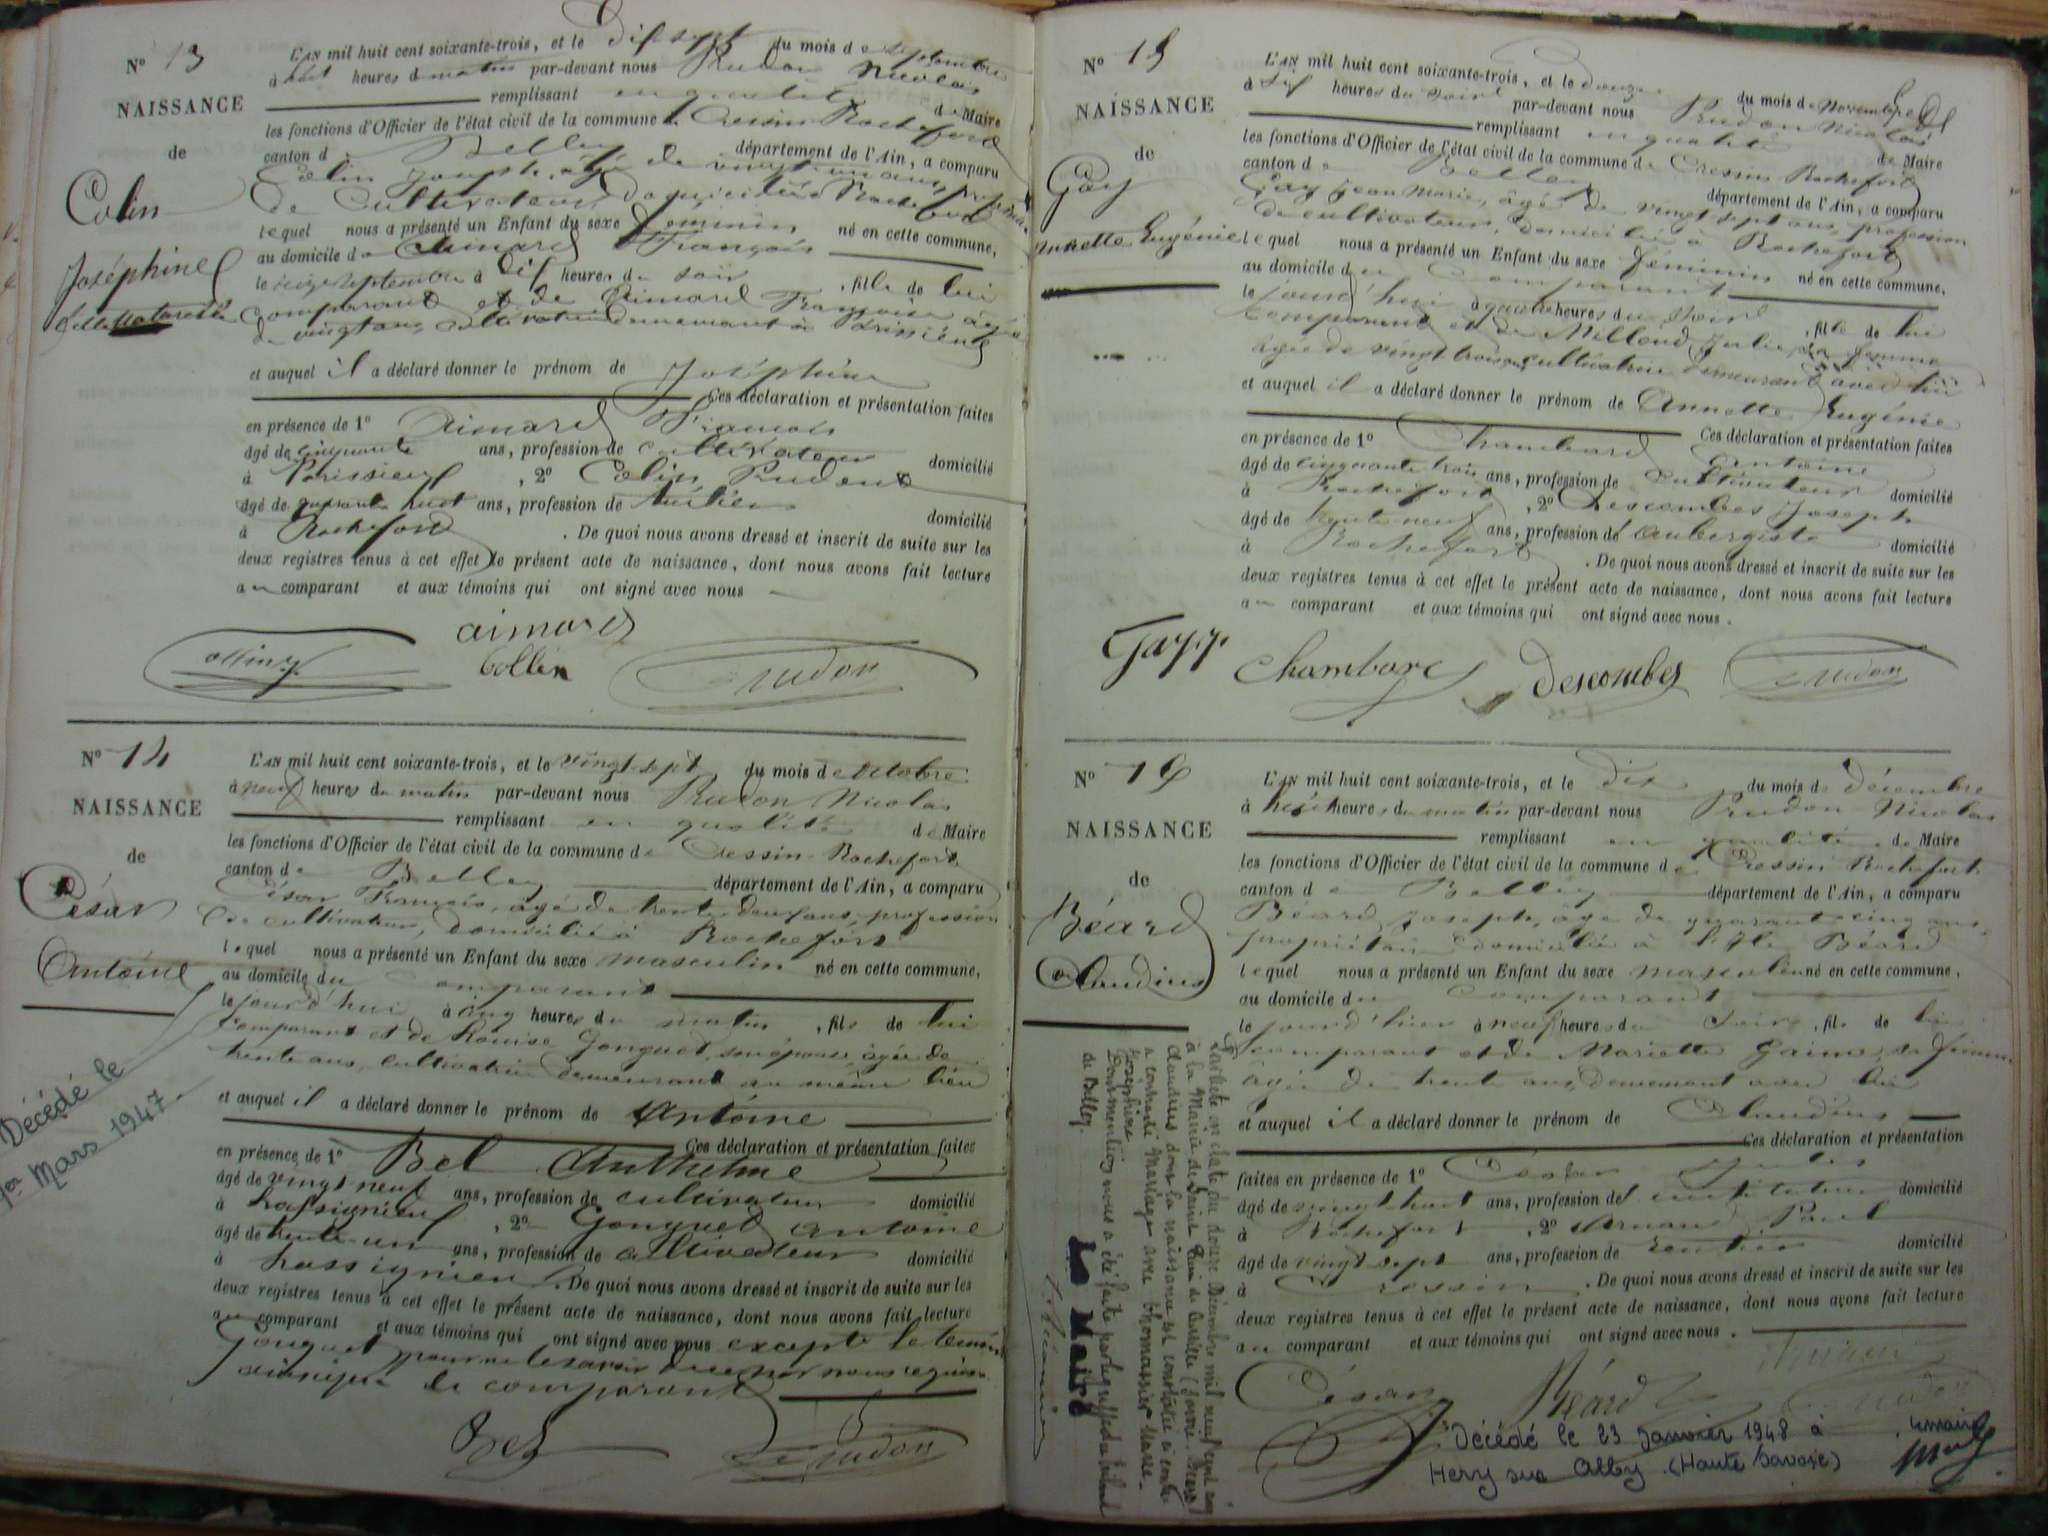 N° 13
NAISSANCE
de
Colin
Joséphine
L'AN mil huit cent soixante-trois, et le dix sept du mois de septembre
à huit heures du matin par-devant nous Prudon Nicolas
remplissant en qualité de Maire
les fonctions d'Officier de l'état civil de la commune de Cressin Rochefort
canton de Belley département de l'Ain, a comparu
Colin Joseph, âgé de vingt un ans, profession
de cultivateur, domicilié à Rochefort
lequel nous a présenté un Enfant du sexe féminin né en cette commune,
au domicile de Aimard François
le seize septembre à dix heures du soir, fille de lui
comparant et de Aimard Françoise âgée
de vingt ans, cultivatrice demeurant à Parissieu
et auquel il a déclaré donner le prénom de Joséphine
Ces déclaration et présentation faites
en présence de 1° Aimard François
âgé de cinquante ans, profession de cultivateur domicilié
à Parissieu, 2° Colin Prudent
âgé de quarante huit ans, profession de domicilié
à Rochefort. De quoi nous avons dressé et inscrit de suite sur les
deux registres tenus à cet effet le présent acte de naissance, dont nous avons fait lecture
au comparant et aux témoins qui ont signé avec nous
aimard
collin
Prudon
N° 14
NAISSANCE
de
César
Antoine
Décédé le
1er Mars 1947.
L'AN mil huit cent soixante-trois, et le vingt-sept du mois de octobre
à neuf heures du matin par-devant nous Prudon Nicolas
remplissant en qualité de Maire
les fonctions d'Officier de l'état civil de la commune de Cressin-Rochefort
canton de Belley département de l'Ain, a comparu
César François, âgé de trente deux ans, profession
de cultivateur, domicilié à Rochefort
lequel nous a présenté un Enfant du sexe masculin né en cette commune,
au domicile du comparant
le jourd'hui à cinq heures du matin, fils de lui
comparant et de Louise Gonguet, son épouse, âgée de
trente ans, cultivatrice demeurant au même lieu
et auquel il a déclaré donner le prénom de Antoine
Ces déclaration et présentation faites
en présence de 1° Bel Anthelme
âgé de vingt neuf ans, profession de cultivateur domicilié
à Lassignieu, 2° Gonguet Antoine
âgé de trente-un ans, profession de cultivateur domicilié
à Lassignieu. De quoi nous avons dressé et inscrit de suite sur les
deux registres tenus à cet effet le présent acte de naissance, dont nous avons fait lecture
au comparant et aux témoins qui ont signé avec nous excepté le témoin
Gonguet pour ne le savoir de ce par nous requis
ainsi que le comparant
Bel
Prudon
N° 15
NAISSANCE
de
Gay
Annette Eugénie
L'AN mil huit cent soixante-trois, et le douze du mois de novembre
à six heures du soir par-devant nous Prudon Nicolas
remplissant en qualité de Maire
les fonctions d'Officier de l'état civil de la commune de Cressin Rochefort
canton de Belley département de l'Ain, a comparu
Gay Jean Marie, âgé de vingt sept ans, profession
de cultivateur, domicilié à Rochefort
lequel nous a présenté un Enfant du sexe féminin né en cette commune,
au domicile du comparant
le jourd'hui à quatre heures du soir, fille de lui
comparant et de Milloud Julie, sa femme
âgée de vingt trois ans, cultivatrice demeurant avec lui
et auquel il a déclaré donner le prénom de Annette Eugénie
Ces déclaration et présentation faites
en présence de 1° Chambard Antoine
âgé de cinquante trois ans, profession de cultivateur domicilié
à Rochefort, 2° Descombes Joseph
âgé de trente neuf ans, profession de aubergiste domicilié
à Rochefort. De quoi nous avons dressé et inscrit de suite sur les
deux registres tenus à cet effet le présent acte de naissance, dont nous avons fait lecture
au comparant et aux témoins qui ont signé avec nous.
Gay
Chambard
Descombes
Prudon
N° 16
NAISSANCE
de
Béard
Claudius
L'AN mil huit cent soixante-trois, et le dix du mois de décembre
à huit heures du matin par-devant nous Prudon Nicolas
remplissant en qualité de Maire
les fonctions d'Officier de l'état civil de la commune de Cressin Rochefort
canton de Belley département de l'Ain, a comparu
Béard Joseph, âgé de quarante cinq ans,
propriétaire domicilié à l'Ile Béard
lequel nous a présenté un Enfant du sexe masculin né en cette commune,
au domicile du comparant
le jourd'hier à neuf heures du soir, fils de lui
comparant et de Mariette Gaime, sa femme
âgée de trente ans, demeurant avec lui
et auquel il a déclaré donner le prénom de Claudius
Ces déclaration et présentation
faites en présence de 1° César Jules
âgé de vingt huit ans, profession de instituteur domicilié
à Rochefort, 2° Arnaud Paul
âgé de vingt sept ans, profession de rentier domicilié
à Cressin. De quoi nous avons dressé et inscrit de suite sur les
deux registres tenus à cet effet le présent acte de naissance, dont nous avons fait lecture
au comparant et aux témoins qui ont signé avec nous.
César
Béard
Prudon
Par acte en date du douze Décembre mil neuf cent cinq
à la Mairie de Saint (Savoie) Béard
Claudius dont la naissance est constatée ci contre
a contracté mariage avec Thomassier Marie
Joséphine
Dont mention nous a été faite par le greffe du tribunal
de Belley.
Le Maire
Décédé le 23 Janvier 1948 à
Hery sur Alby (Haute Savoie)
Le maire